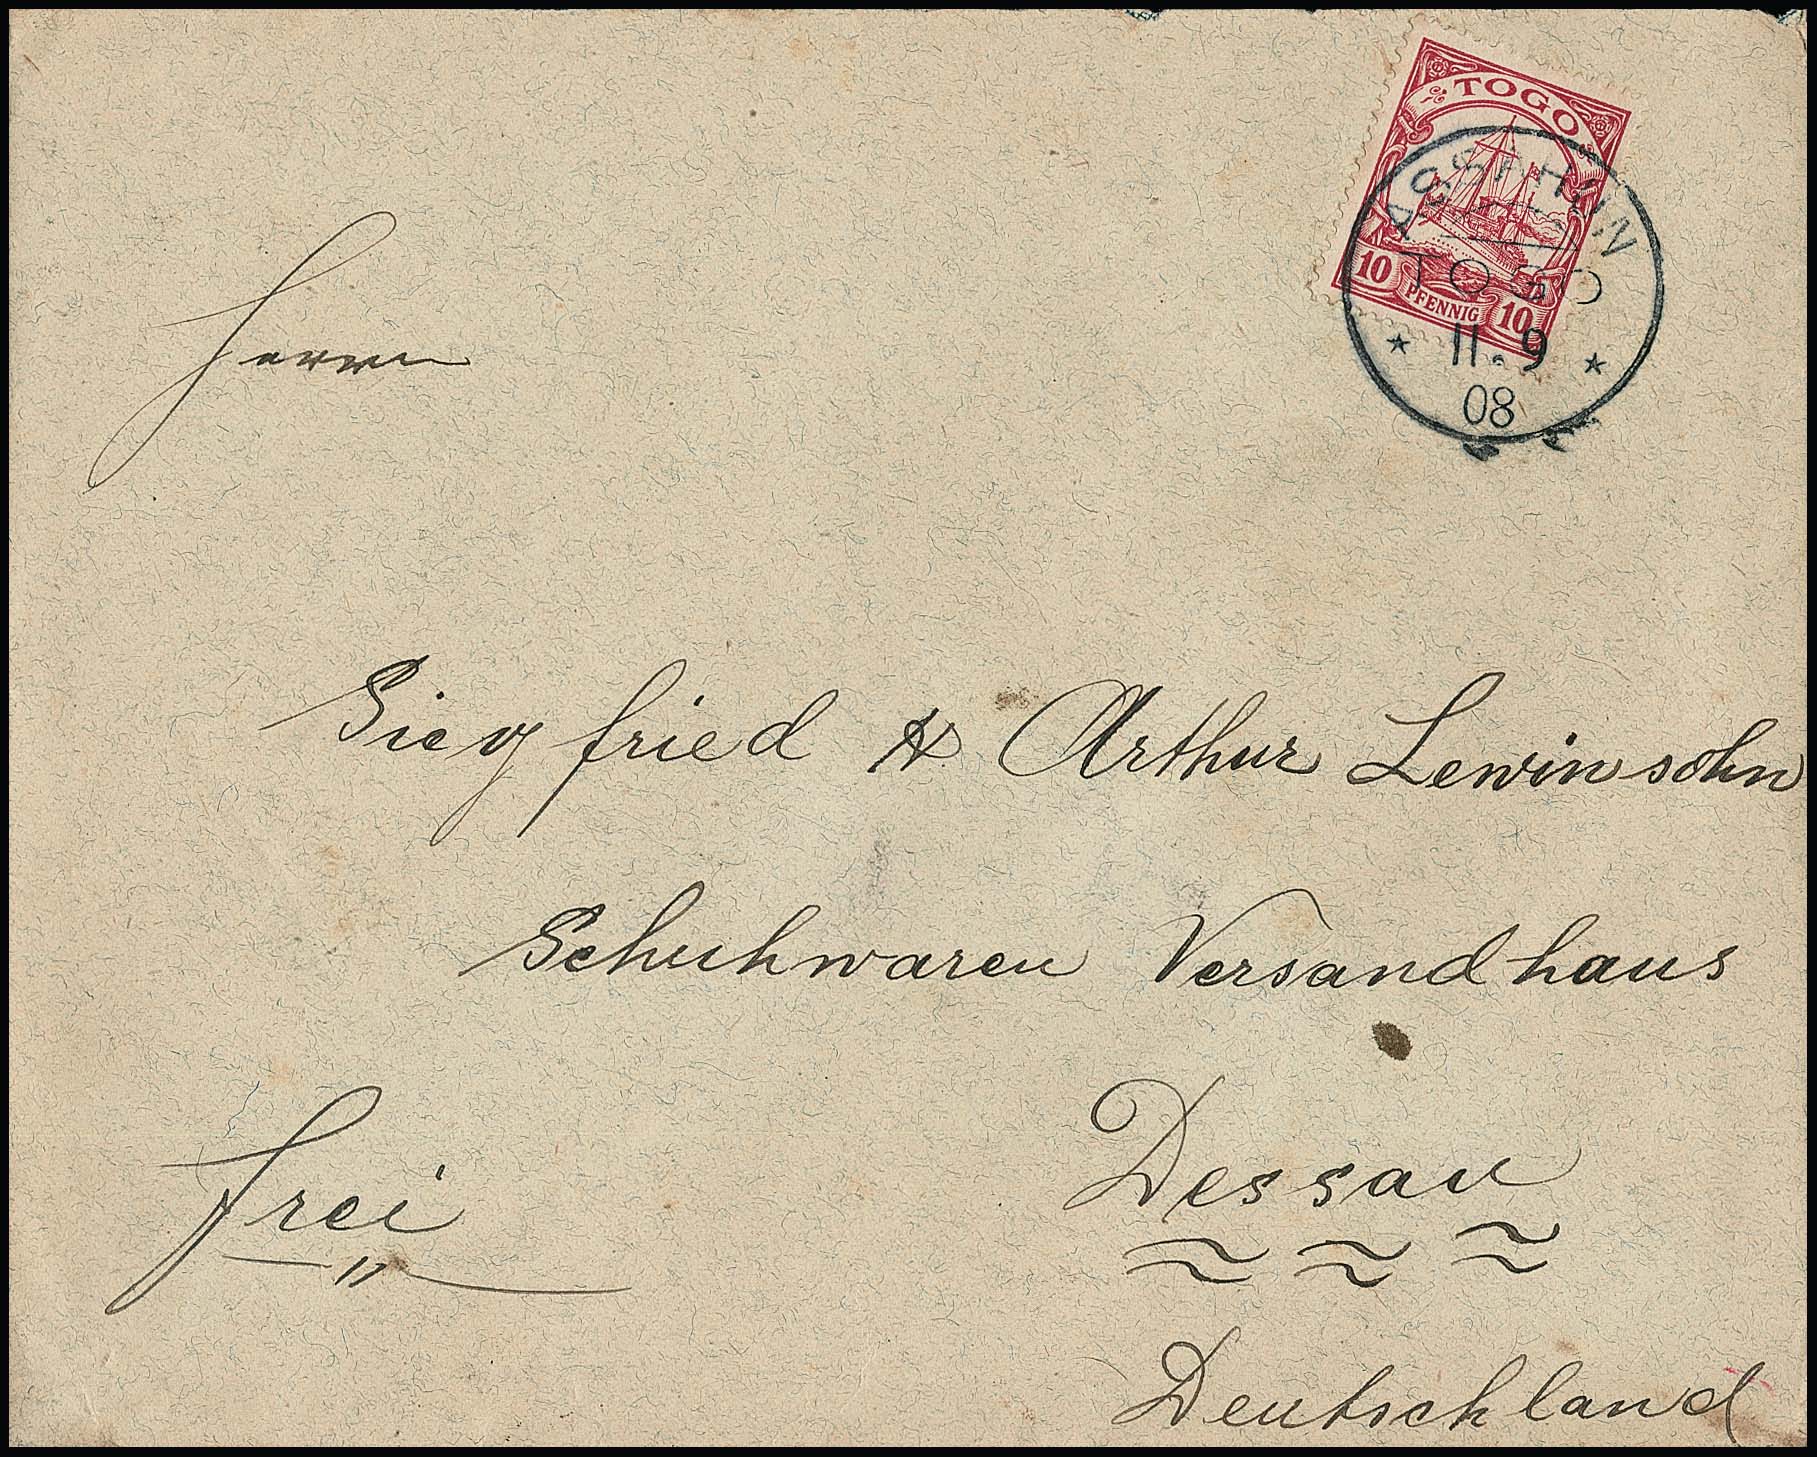 TOGO
10 PFENNIG 10
ASSAHUN
TOGO
* 11.9 *
08
Herrn
Siegfried & Arthur Lewinsohn
Schuhwaren Versandhaus
frei
Dessau
Deutschland